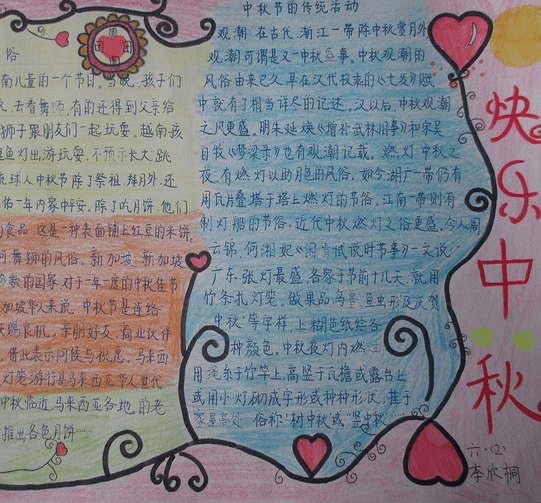 俗
南儿童的一个节日。当晚，孩子们
去看舞狮，有的还得到父亲给
狮子跟朋友们一起玩耍。越南孩
鲤鱼灯出游玩耍，不预示长大"跳
琉球人中秋节除了祭祖、拜月外，还
佑一年内家中平安。除了吃月饼，他们
的食品，这是一种表面铺上红豆的米饼，
何舞狮的风俗。新加坡：新加坡
的国家，对于一年一度的中秋佳节
加坡华人来说，中秋节是连络
天赐良机，亲朋好友、商业伙伴
借此表示问候与祝愿。马来西
灯笼游行是马来西亚华人世代
中秋临近，马来西亚各地的老
推出各色月饼……
中秋节的传统活动
观潮：在古代，浙江一带除中秋赏月外
观潮可谓是又一中秋盛事。中秋观潮的
风俗由来已久，早在汉代枚乘的《七发》赋
中就有了相当详尽的记述。汉以后，中秋观潮
之风更盛。明朱延焕《增补武林旧事》和宋吴
自牧《梦梁录》也有观潮记载。燃灯：中秋之
夜，有燃灯以助月色的风俗。如今湖广一带仍有
用瓦片叠塔于塔上燃灯的节俗。江南一带则有
制灯船的节俗。近代中秋燃灯之俗更盛。今人周
云锦、何湘妃《闲情试说时节事》一文说：
广东张灯最盛，各家于节前十几天，就用
竹条扎灯笼。做果品、鸟兽、鱼虫形及庆贺
中秋"等字样，上糊色纸绘各
种颜色。中秋夜灯内燃
用绳系于竹竿上，高竖于瓦檐或露台上
或用小灯砌成字形或种种形状，挂于
家屋高处，俗称"树中秋"或"竖中秋"……
快乐中秋
六·(2)
李欣桐